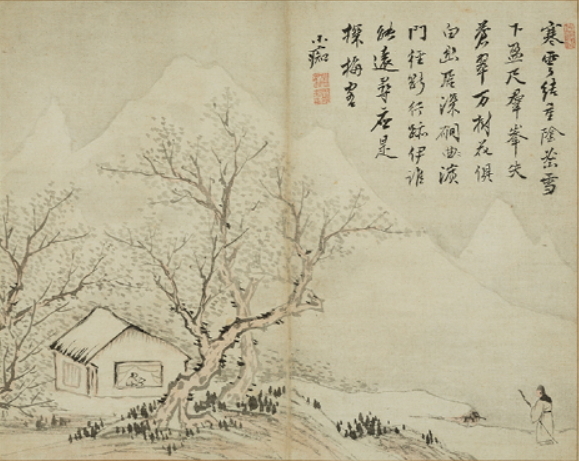 寒雲結重陰密雪
下盈尺羣峯失
蒼翠万樹花俱
白幽居深磵曲濱
門徑断行跡伊誰
能遠尋應是
探梅客
小癡